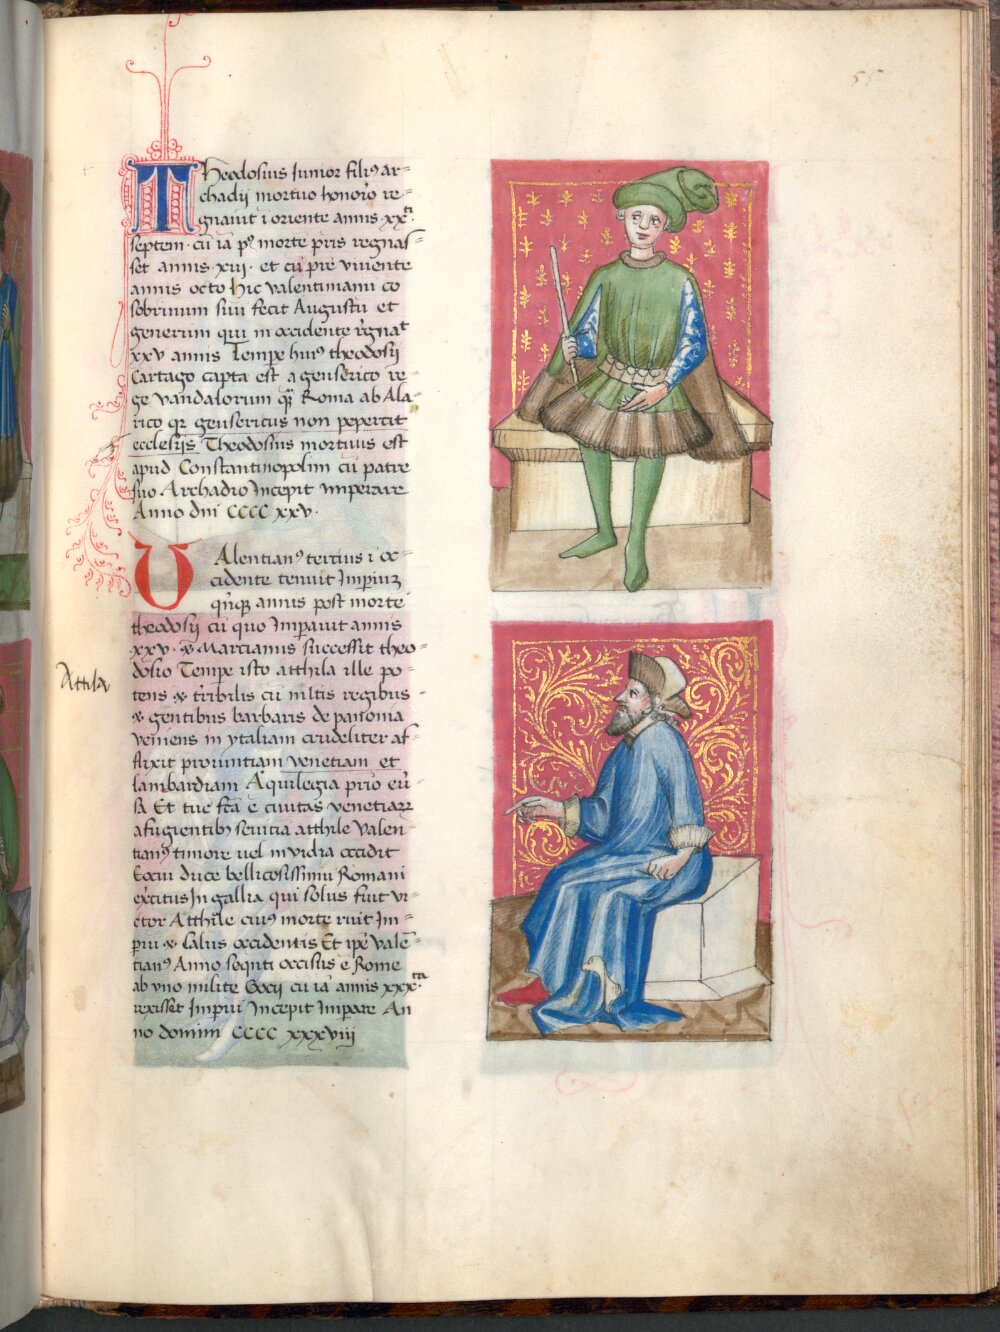 55
Theodosius Iunior filiꝰ ar=
chadij mortuo honorio re=
gnauit ī oriente annis ·xxti·
septem · cū iā pꝰ morte pris regnas=
set annis ·xvii · et cū pre viuente
annis octo hic valentinianū co
sobrinum suū fecit Augustū et
generum qui in occidente rignat
xxv annis Tempe huiꝰ theodosij
Cartago capta est a genserico re=
ge vandalorum Roma ab Ala=
rico qr gensericus non pepercit
ecclesijs Theodosius mortuus est
apud Constantinopolim cū patre
suo Archadio Incepit imperare
Anno dni CCCC xxv ·
VAlentianꝰ tertius ī oc=
cidente tenuit Imperiuȝ
annis post morte
theodosij cū quo Imparauit annis
xxv · & Marcianus successit theo=
dosio Tempe isto atthila ille po=
tens & tribilis cū multis regibus
& gentibus barbaris de panonia
veniens in ytaliam crudeliter af=
flixit prouintiam venetiam et
lambardiam Aquilegia prio
Et tūc fcā ē ciuitas venetiaꝝ
a fugientibꝫ seuitia atthile Valen=
tianꝰ timore uel inuidia occidit
duce bellicosissimū Romani
excitus In gallia qui solus fuit vi=
ctor Atthile cuiꝰ morte ruit Im=
priū & salus occidentis Et ipē valē=
tianꝰ Anno seqnti occisus ē Rome
ab vno milite cū iā annis xxxta
rexisset Impriū Incepit Impare An
no domini CCCC xxxviii
Attila